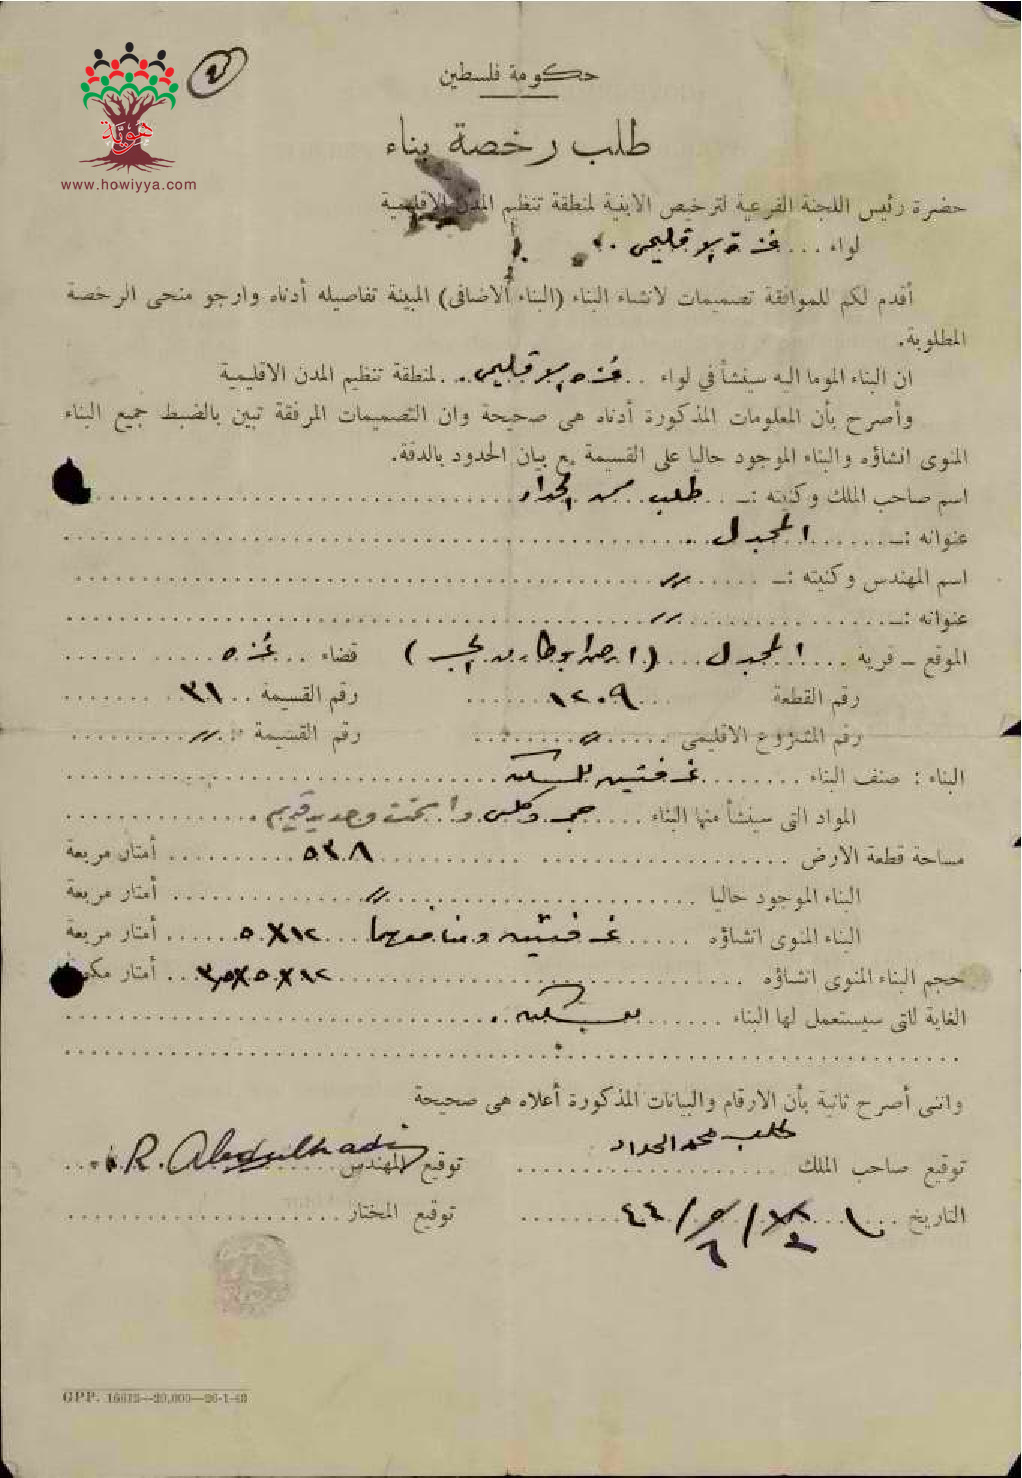 هوية
www.howiyya.com
حكومة فلسطين
طلب رخصة بناء
حضرة رئيس اللجنة الفرعية لترخيص الابنية لمنطقة تنظيم المدن الاقليمية
لواء ... غزة الاقليمي
أقدم لكم للموافقة تصميمات لانشاء البناء (البناء الاضافى) المبينة تفاصيله أدناه وارجو منحى الرخصة
المطلوبة.
ان البناء الموما اليه سينشأ في لواء .. غزه الاقليمي .. لمنطقة تنظيم المدن الاقليمية
وأصرح بأن المعلومات المذكورة أدناه هى صحيحة وان التصميمات المرفقة تبين بالضبط جميع البناء
المنوى انشاؤه والبناء الموجود حاليا على القسيمة مع بيان الحدود بالدقة.
اسم صاحب الملك وكنيته :ـ طلب محمد الحداد
عنوانه :ـ المجدل
اسم المهندس وكنيته :ـ 〃
عنوانه :ـ 〃
الموقع ـ قرية ... المجدل ... قضاء ... غزه
رقم القطعة ... ١٢٠٩ ... رقم القسيمة .. ٣١
رقم المشروع الاقليمى ... 〃 ... رقم القسيمة : 〃
البناء : صنف البناء ... غرفتين للسكن
المواد التى سينشأ منها البناء ... حجر وكلس و وحديد قديم
مساحة قطعة الارض ... ٥٣٠٨ ... أمتار مربعة
البناء الموجود حاليا ... 〃 ... أمتار مربعة
البناء المنوى انشاؤه ... غرفتين ومنافعهما ... ١٢×٥ ... أمتار مربعة
حجم البناء المنوى انشاؤه ... ١٢×٥×٣,٥ ... أمتار مكعبة
الغاية لاتى سيستعمل لها البناء ... للسكن
وانى أصرح ثانية بأن الارقام والبيانات المذكورة أعلاه هى صحيحة
توقيع صاحب الملك طلب محمد الحداد توقيع المهندس R. Abdulhadi
التاريخ ... ٤٤ توقيع المختار
GPP. 16613—20,000—26-1-43